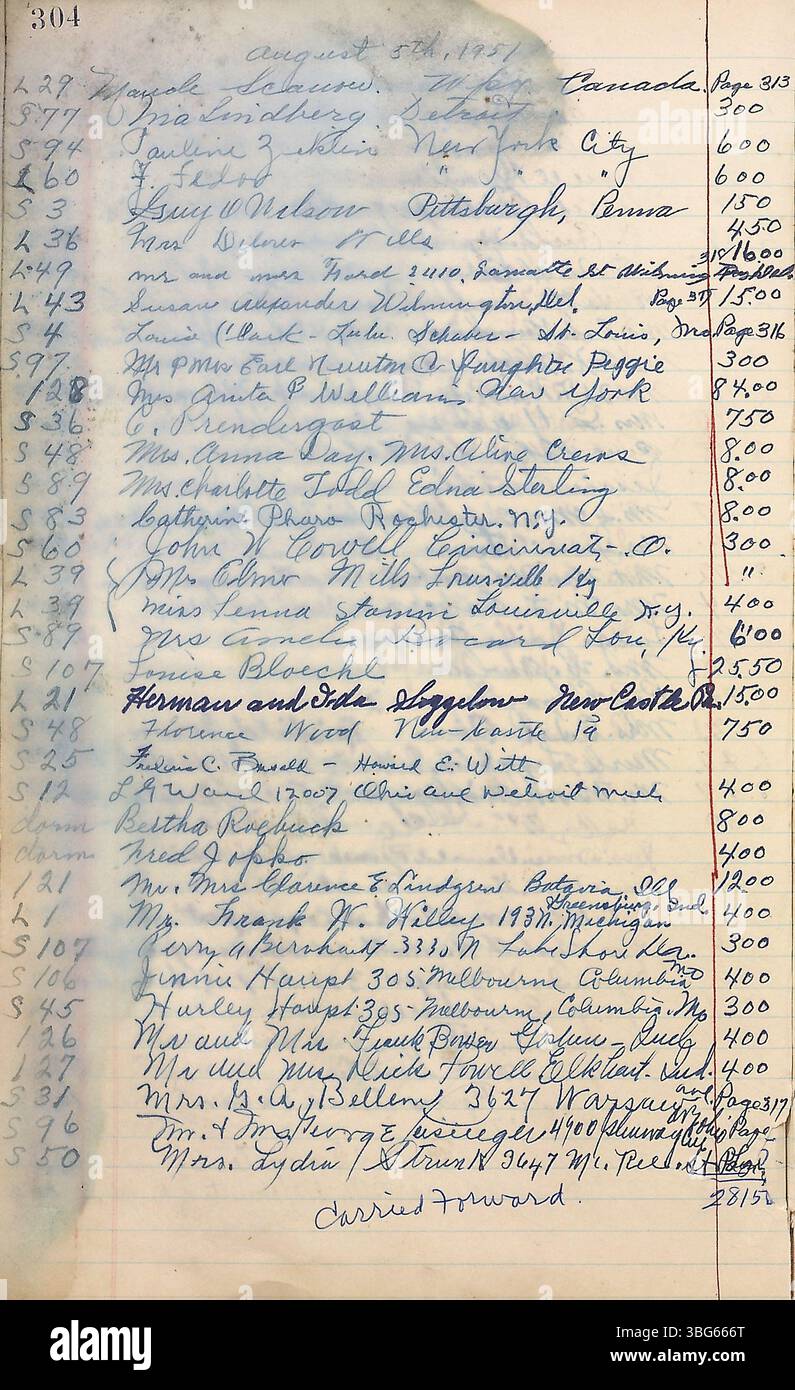 304
August 5th, 1951
L 29 Maude Scanow. Wpg. Canada. Page 313
S 77 Ina Lindberg Detroit 300
S 94 Pauline New York City 600
L 60 F. " " " 600
S 3 Guy O Nelson Pittsburgh, Penna 150
L 36 Mrs Delores Wills 450
L 49 mr and mrs Ford 2410. Lamatte St Wilming 318/16.00
L 43 Susan Alexander Wilmington, Del. Page 317 15.00
S 4 Louise Clark - Lulu Schaber - St. Louis, Mo Page 316
S 97 Mr & Mrs Earl Newton & Daughter Peggie 300
128 Mrs Anita P Williams New York 84.00
S 36 C. Prendergast 750
S 48 Mrs. Anna Day. Mrs. Aline Crews 8.00
S 89 Mrs. Charlotte Todd Edna Sterling 8.00
S 83 Catherine Pharo Rochester. N.Y. 8.00
S 60 John W Cowell Cincinnati - O. 300
L 39 Mrs Elmer Mills Louisville Ky "
L 39 miss Lenna Stamm Louisville Ky. 400
S 89 Mrs Amelia Lou, Ky. 6.00
S 107 Louise Bloechl 25.50
L 21 Herman and Ida Siggelow New Castle Pa. 15.00
S 48 Florence Wood New-Castle Pa 750
S 25 C. - Howard E. Witt
S 12 L G Ward 12007 Ohio ave Detroit Mich 400
dorm Bertha Roebuck 800
dorm Fred Joppo 400
121 Mr. Mrs Clarence E. Lindgren Batavia Ill 12.00
Greensburg, Ind.
L 1 Mr. Frank W. Willey 193 N. Michigan 400
S 107 Perry A Bernhardt 3330 N Lake Shore Dr. 300
S 106 Jennie Haupt 305 - Melbourne Columbia Mo 400
S 45 Hurley Haupt 305 - Melbourne, Columbia. Mo 300
126 Mr and Mrs Frank Bowen Goshen - Ind 400
127 Mr and Mrs Dick Powell Elkhart - Ind. 400
S 31 Mrs. G. A. Bellem 3627 Warsaw ave. Page 317
S 96 Mr. & Mrs George 4900 Page
S 50 Mrs. Lydia Strunk 3647 Mc.
Carried Forward. 28150
alamy
alamy
Image ID: 3BG666T
www.alamy.com